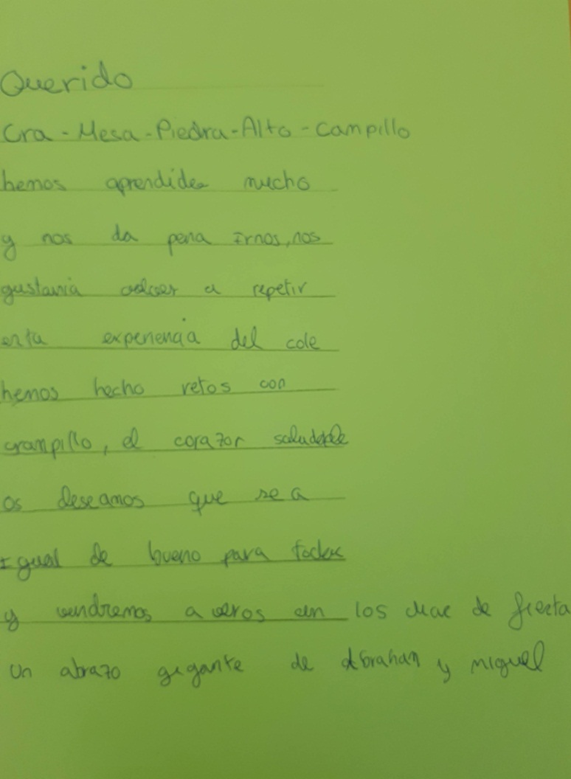 Querido
Cra-Mesa-Piedra-Alta-Campillo
hemos aprendido mucho
y nos da pena irnos, nos
gustaria volver a repetir
esta experiencia del cole
hemos hecho retos con
grampillo, el corazor saludable
os deseamos que sea
igual de bueno para todos
y vendremos a veros en los dias de fiesta
un abrazo gigante de Abrahan y Miguel